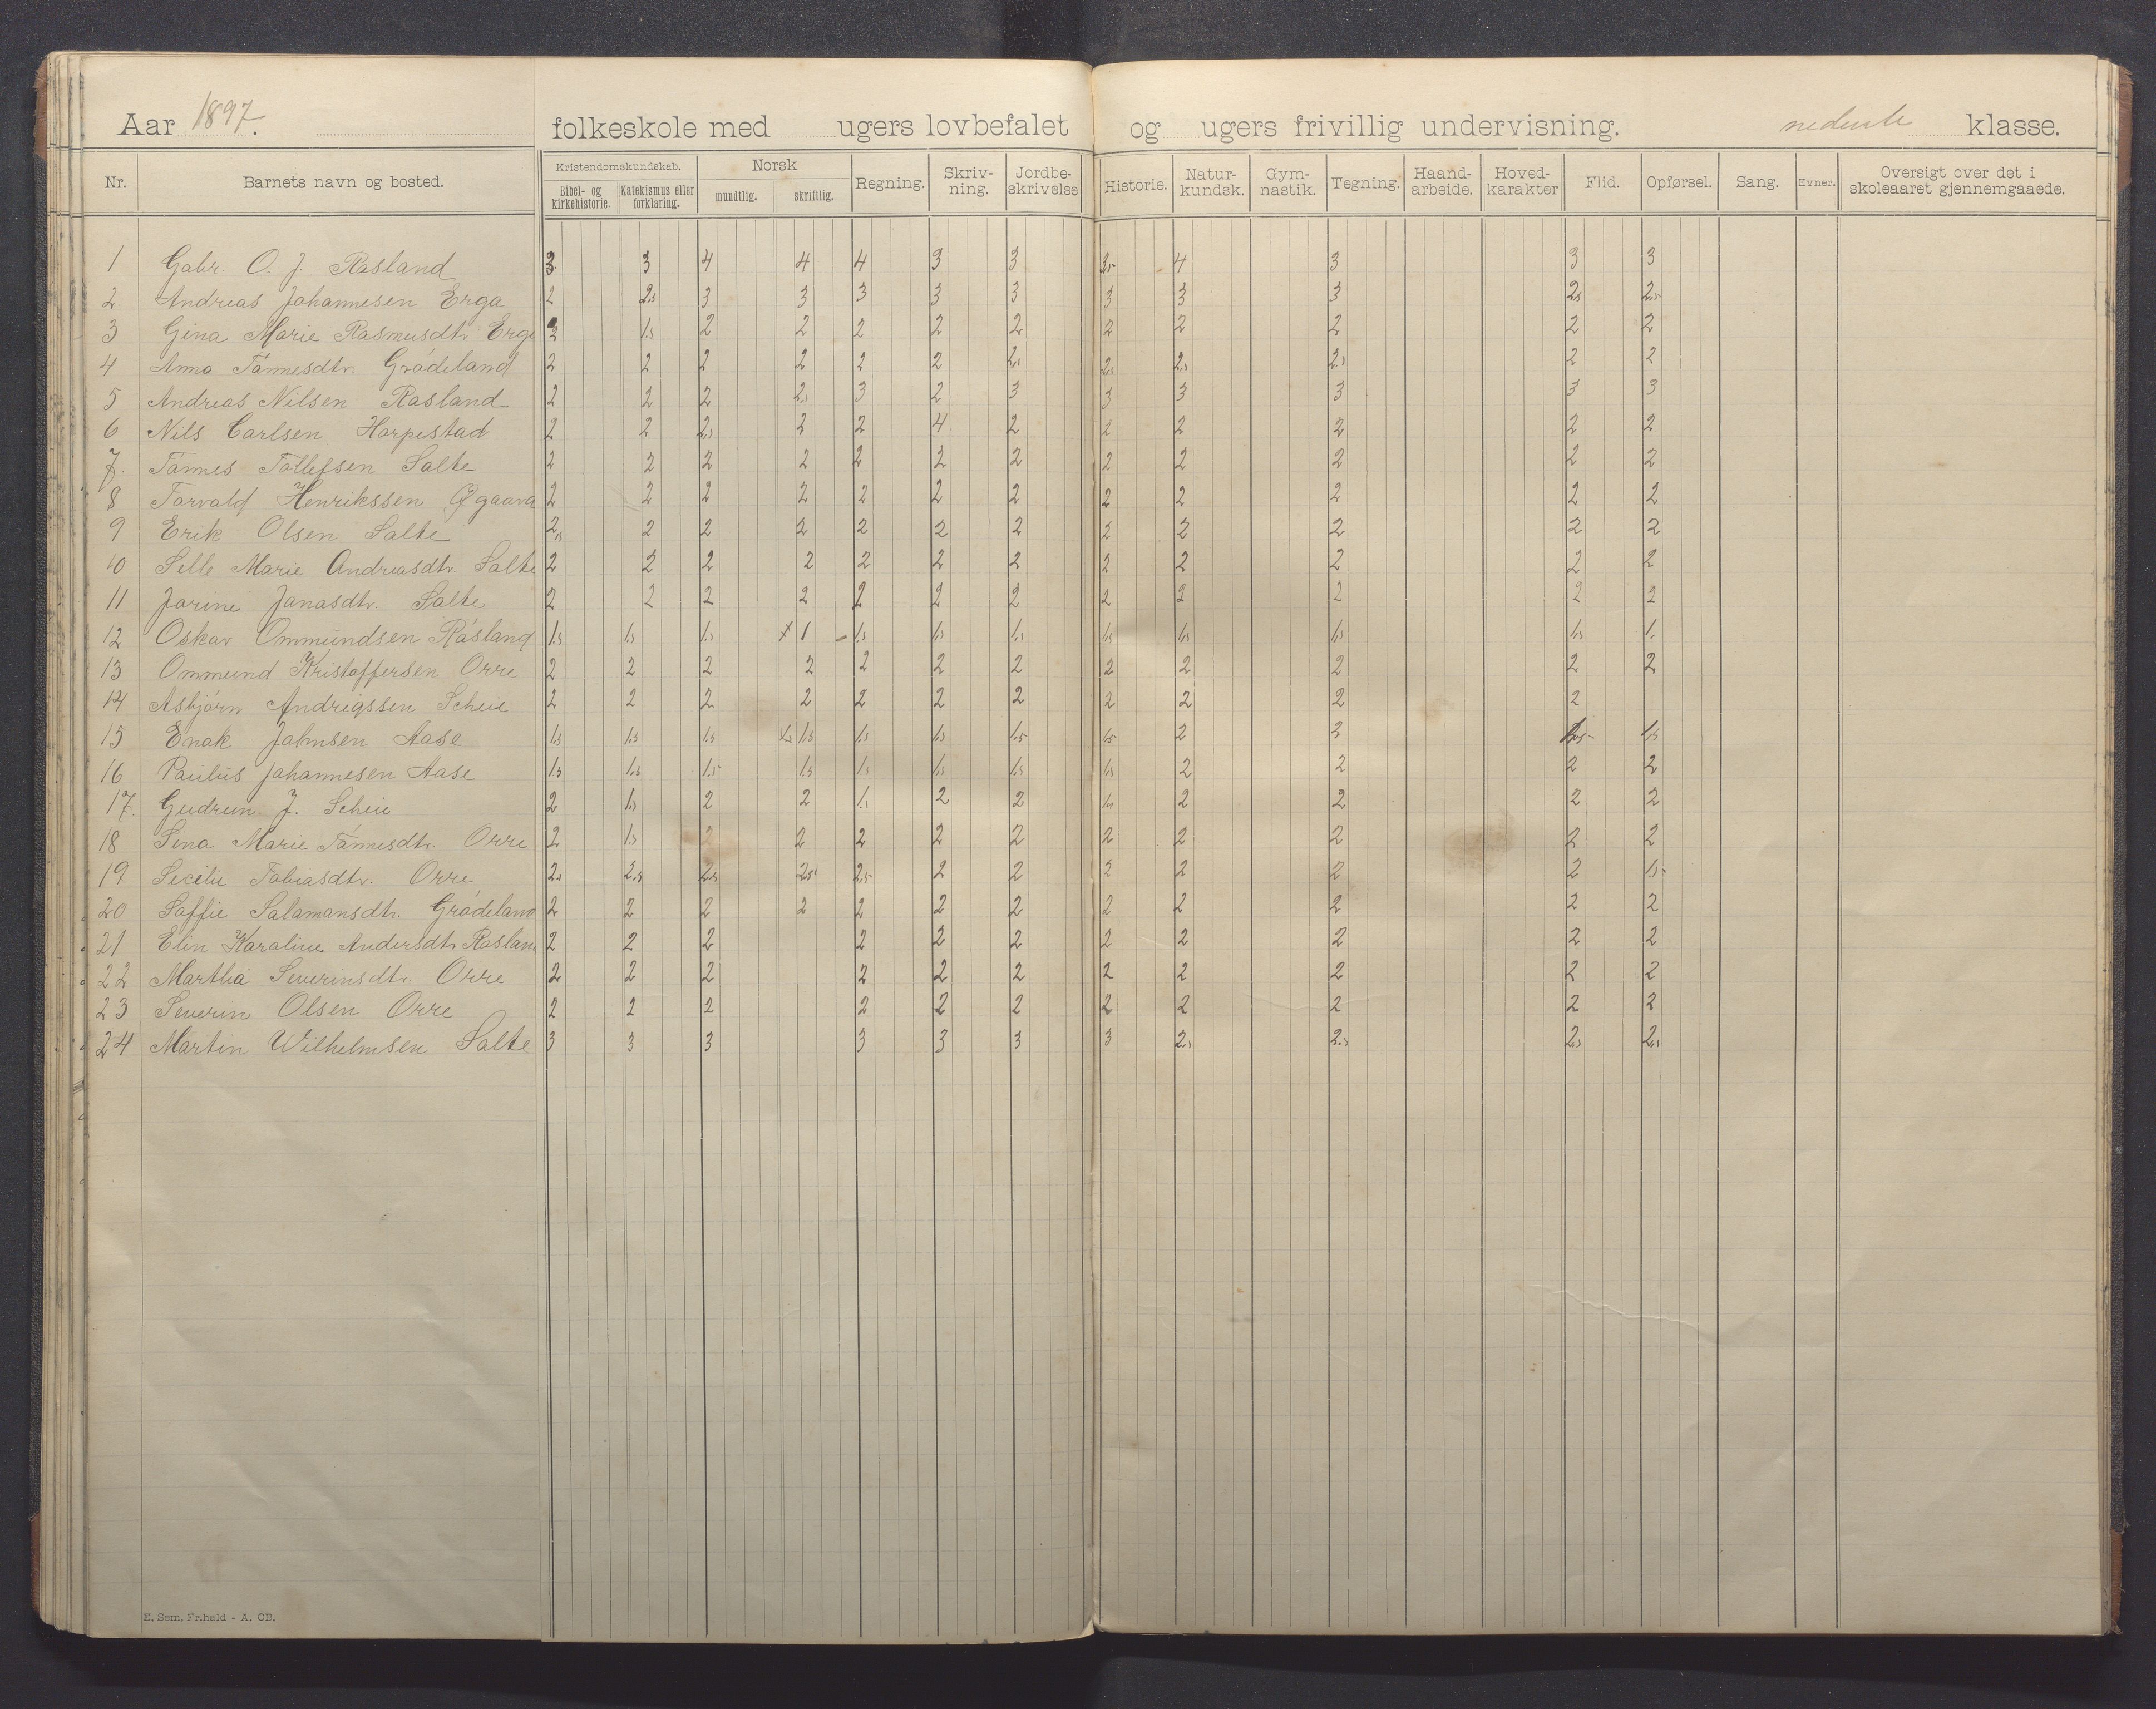 Aar 1897. folkeskole med ugers lovbefalet og ugers frivillig undervisning. nederste klasse.
Nr. Barnets navn og bosted. Kristendomskundskab. Bibel- og kirkehistorie. Katekismus eller forklaring. Norsk mundtlig. skriftlig. Regning. Skriv-ning. Jordbe-skrivelse Historie. Natur-kundsk. Gym-nastik. Tegning. Haand-arbeide. Hoved-karakter Flid. Opførsel. Sang. Evner. Oversigt over det i skoleaaret gjennemgaaede.
1 Gabr. O. J. Rasland 3 3 4 4 4 3 3 3,5 4 3 3 3
2. Andreas Johannesen Erga 2 2,5 3 3 3 3 3 3 3 3 2,5 2,5
3 Gina Marie Rasmusdtr Erga 2 1,5 2 2 2 2 2 2 2 2 2 2
4 Anna Tønnesdtr. Grødeland 2 2 2 2 2 2 2,5 2,5 2,5 2,5 2 2
5 Andreas Nilsen Rasland 2 2 2 2,5 3 2 3 3 3 3 3 3
6 Nils Carlsen Harpestad 2 2 2,5 2 2 4 2 2 2 2 2 2
7. Tønnes Tollefsen Salte 2 2 2 2 2 2 2 2 2 2 2 2
8 Torvald Henrikssen 2 2 2 2 2 2 2 2 2 2 2 2
9 Erik Olsen Salte 2,5 2 2 2 2 2 2 2 2 2 2 2
10 Selle Marie Andreasdtr. Salte 2 2 2 2 2 2 2 2 2 2 2 2
11 Jorine Jonasdtr. Salte 2 2 2 2 2 2 2 2 2 2 2 2
12 Oskar Ommundsen Råsland 1,5 1,5 1,5 x 1 - 1,5 1,5 1,5 1,5 1,5 1,5 1,5 1.
13 Ommund Kristoffersen Orre 2 2 2 2 2 2 2 2 2 2 2 2
14 Asbjørn Andrigssen Scheie 2 2 2 2 2 2 2 2 2 2 2
15 Enok Johnsen Aase 1,5 1,5 1,5 1,5 1,5 1,5 1,5 1,5 2 2 1,5 1,5
16 Paulus Johannesen Aase 1,5 1,5 1,5 1,5 1,5 1,5 1,5 1,5 2 2 2 2
17. Gudrun J. Scheie 2 1,5 2 2 1,5 2 2 1,5 2 2 2 2
18 Sina Marie Tønnesdtr. Orre 2 1,5 2 2 2 2 2 2 2 2 2 2
19 Secelie Tobiasdtr. Orre 2,5 2,5 2,5 2,5 2,5 2 2 2 2 2 2 1,5
20 Soffie Salamonsdtr. Grødeland 2 2 2 2 2 2 2 2 2 2 2 2
21 Elin Karoline Andersdtr Rasland 2 2 2 2 2 2 2 2 2 2 2
22 Martha Severinsdtr. Orre 2 2 2 2 2 2 2 2 2 2 2
23 Severin Olsen Orre 2 2 2 2 2 2 2 2 2 2 2
24 Martin Wilhelmsen Salte 3 3 3 3 3 3 3 2,5 2,5 2,5 2,5
E. Sem, Fr.hald - A. CB.